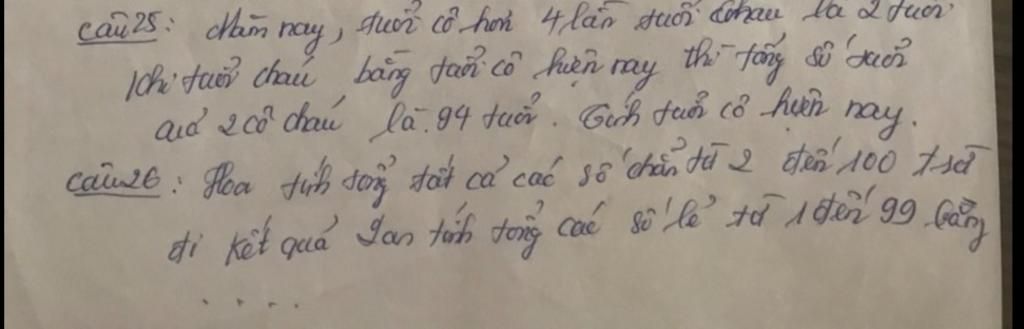 Câu 25: Năm nay, tuổi cô hơn 4 lần tuổi cháu là 2 tuổi
Khi tuổi cháu bằng tuổi cô hiện nay thì tổng số tuổi
của 2 cô cháu là 94 tuổi. Tính tuổi cô hiện nay.
Câu 26: Hoa tính tổng tất cả các số chẵn từ 2 đến 100 trừ
đi kết quả Lan tính tổng các số lẻ từ 1 đến 99 bằng
. . . . .